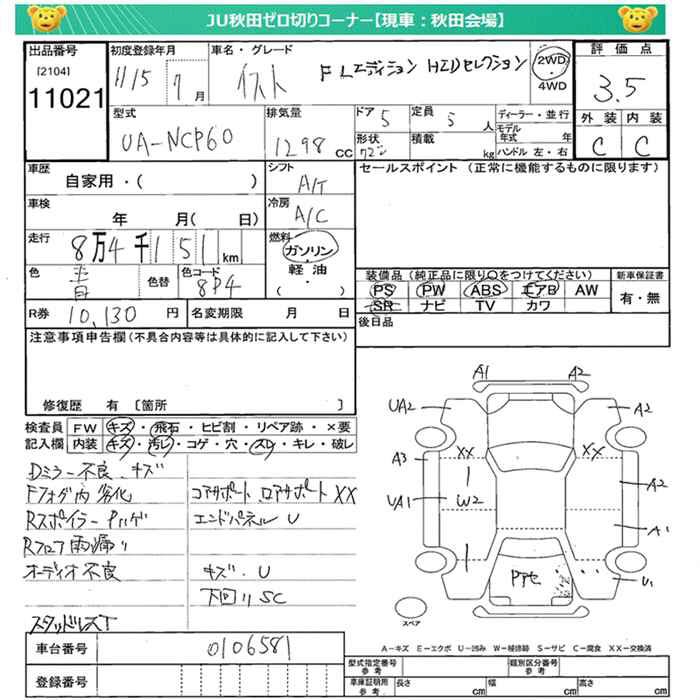 JU秋田ゼロ切りコーナー【現車：秋田会場】
出品番号 初度登録年月 車名・グレード 評価点
[2104] 11021
H15 7月 イスト FLエディション HIDセレクション 2WD・4WD 3.5
型式 排気量 ドア 5 定員 5人 ディーラー・並行 外装 内装
UA-NCP60 1298cc 形状 積載 kg モデル年式 年 C C
ハンドル 左・右
車歴 シフト セールスポイント（正常に機能するものに限ります）
自家用・( ) A/T
車検 冷房
年 月( 日) A/C
走行 燃料
8万4千151km ガソリン
軽油・
( )
色 青 色替 色コード 8P4
装備品（純正品に限り○をつけてください） 新車保証書
PS PW ABS エアB AW 有・無
SR ナビ TV カワ
R券 10,130円 名変期限 月 日 後日品
注意事項申告欄(不具合内容等は具体的に記入して下さい)
修復歴 有 〔箇所 〕
検査員記入欄
FW キズ・飛石・ヒビ割・リペア跡・×要
内装 キズ・汚レ・コゲ・穴・スレ・キレ・破レ
Dミラー不良.キズ
Fフォグ内 劣化 コアサポート ロアサポート XX
Rスポイラー Pハゲ エンドパネル U
Rフロア 雨漏リ
オーディオ不良 キズ.U
下回リSC
スタッドレスT
A1 A2
UA2 A2
XX XX
A3 A2
UA1 W2
A1
U1
スペア
A－キズ E－エクボ U－凹み W－補修跡 S－サビ C－腐食 XX－交換済
車台番号 0106581
登録番号
型式指定番号 参考 類別区分番号 参考
車庫証明用 参考 長さ cm 幅 cm 高さ cm